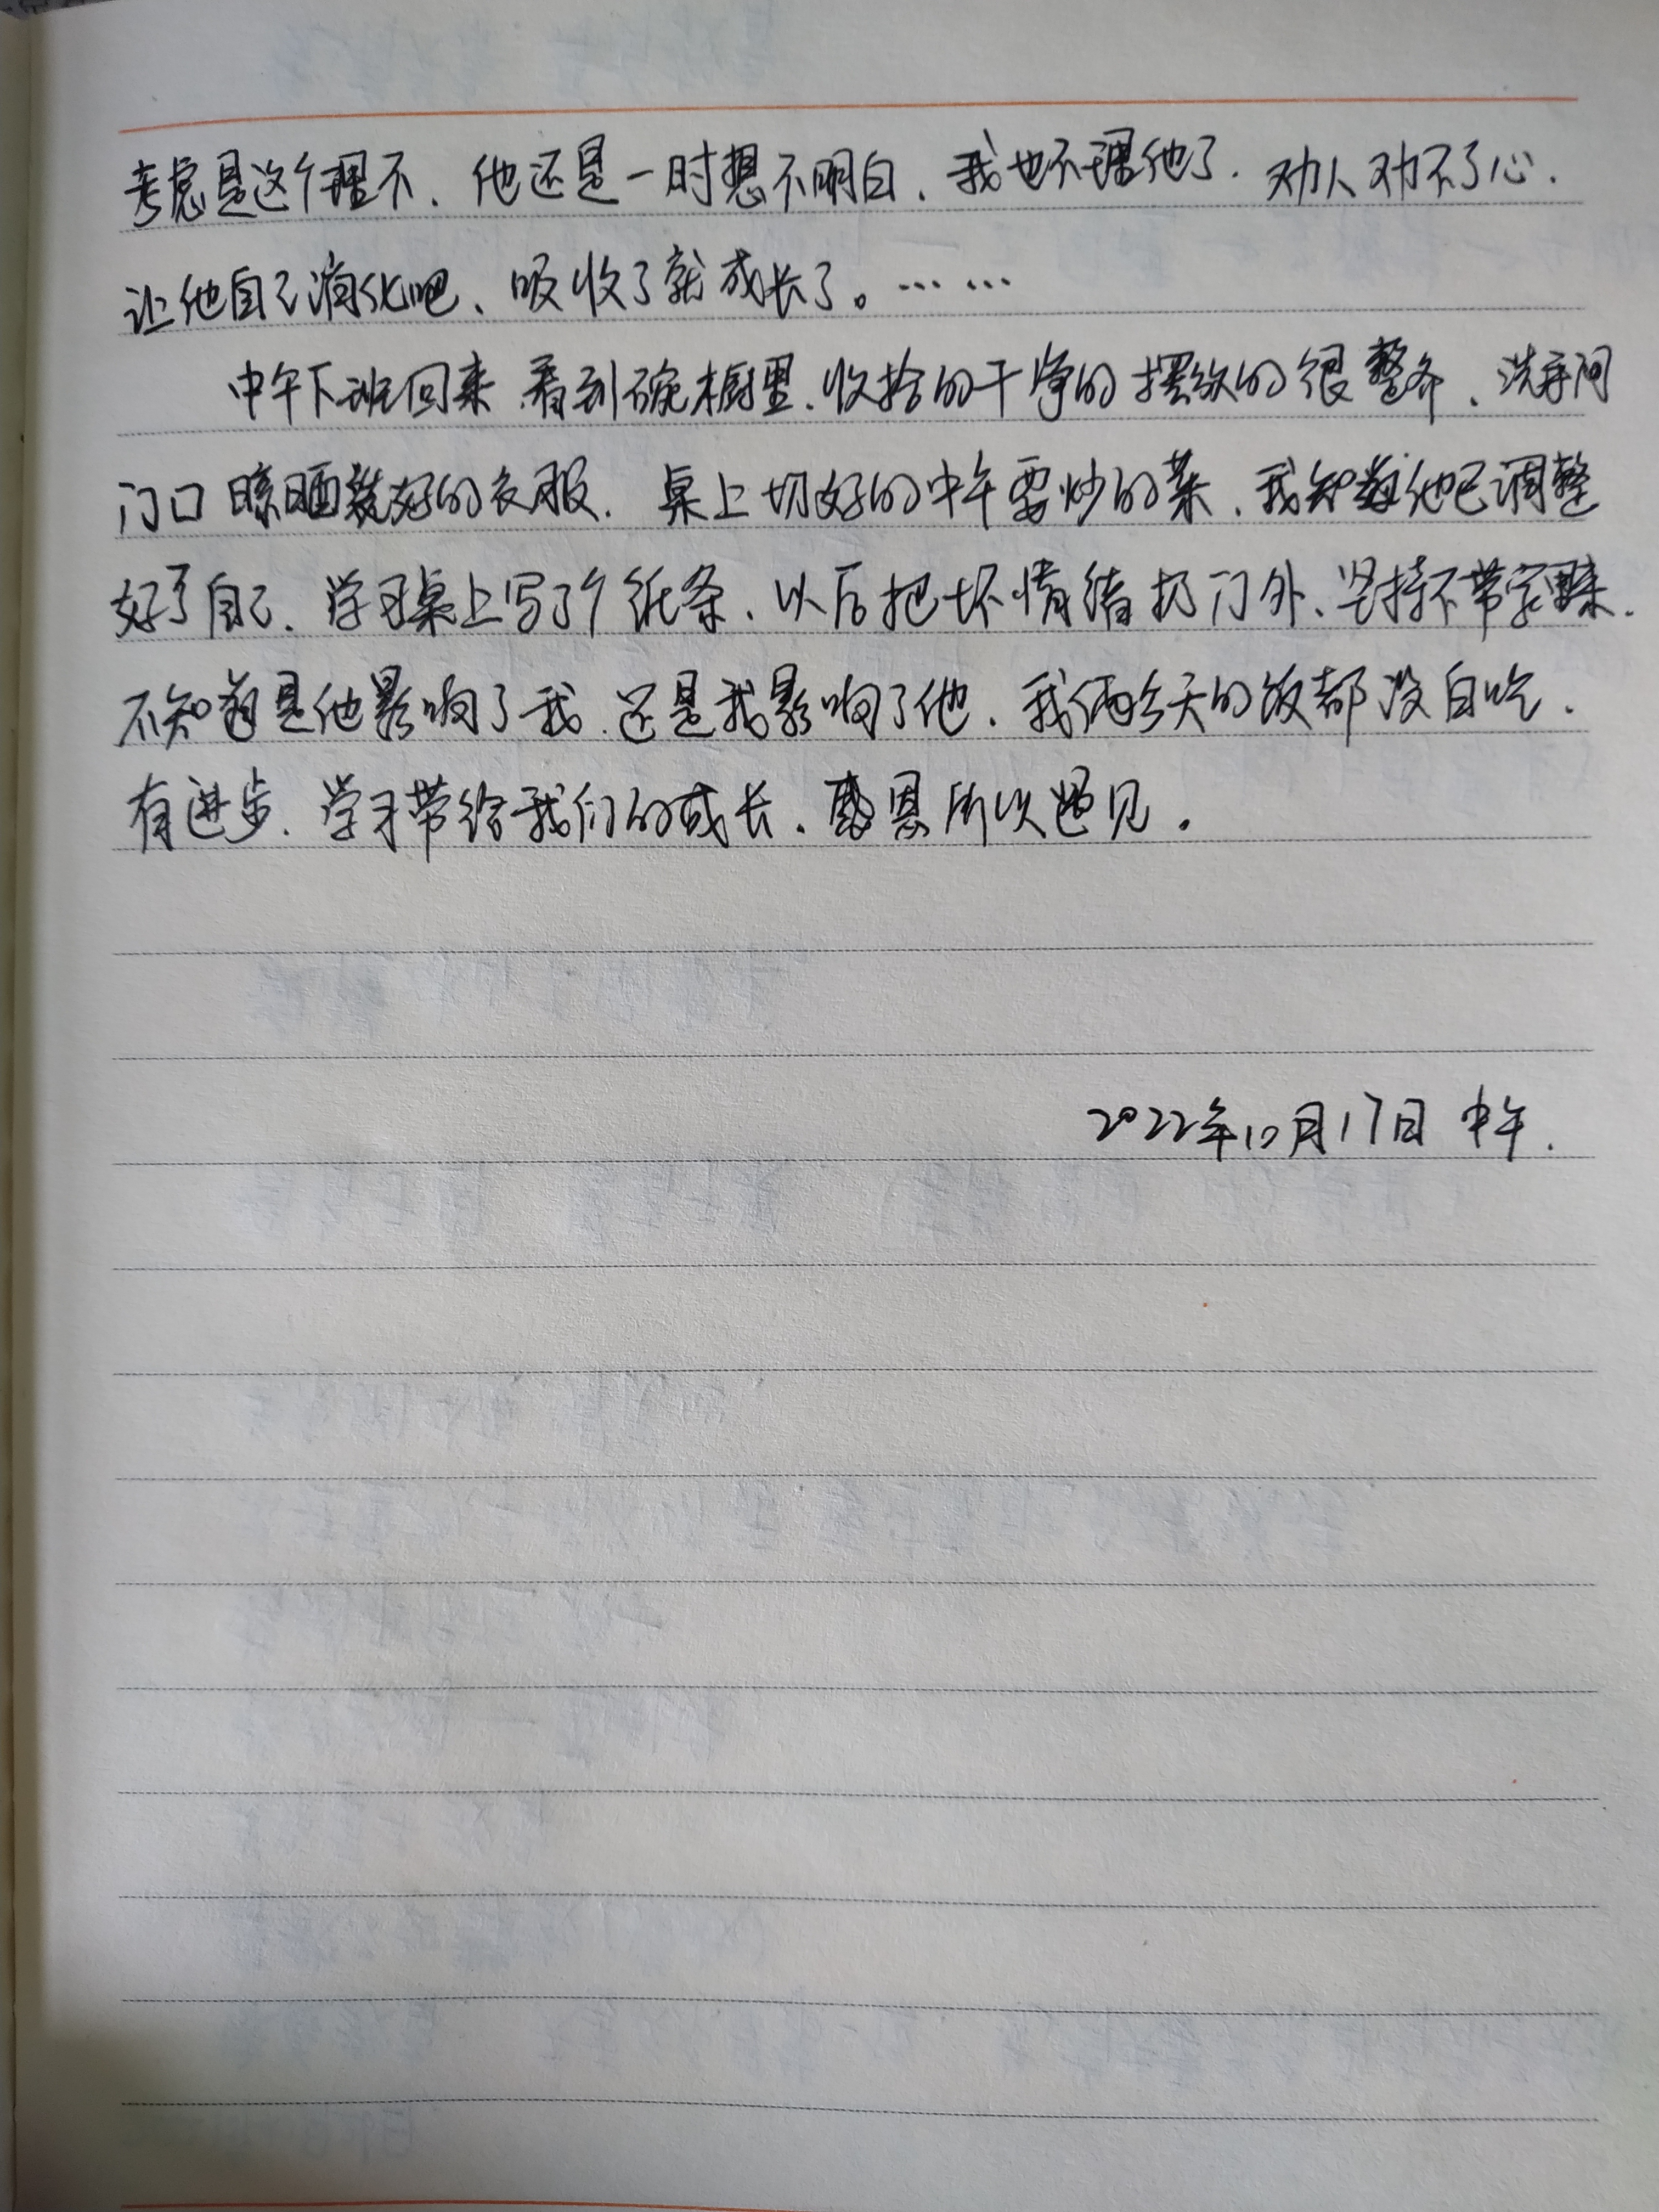 考虑是这个理不、他还是一时想不明白、我也不理他了. 劝人劝不了心.
让他自己消化吧、吸收了就成长了。……
中午下班回来、看到碗橱里、收拾的干净的摆放的很整齐、洗手间
门口晾晒好的衣服. 桌上切好的中午要炒的菜、我知道他已调整
好了自己、学习桌上写了个纸条、以后把坏情绪扔门外、坚持不带家来.
不知道是他影响了我、还是我影响了他、我俩今天的饭都没白吃.
有进步、学习带给我们的成长、感恩所次遇见.
2022年10月17日 中午.